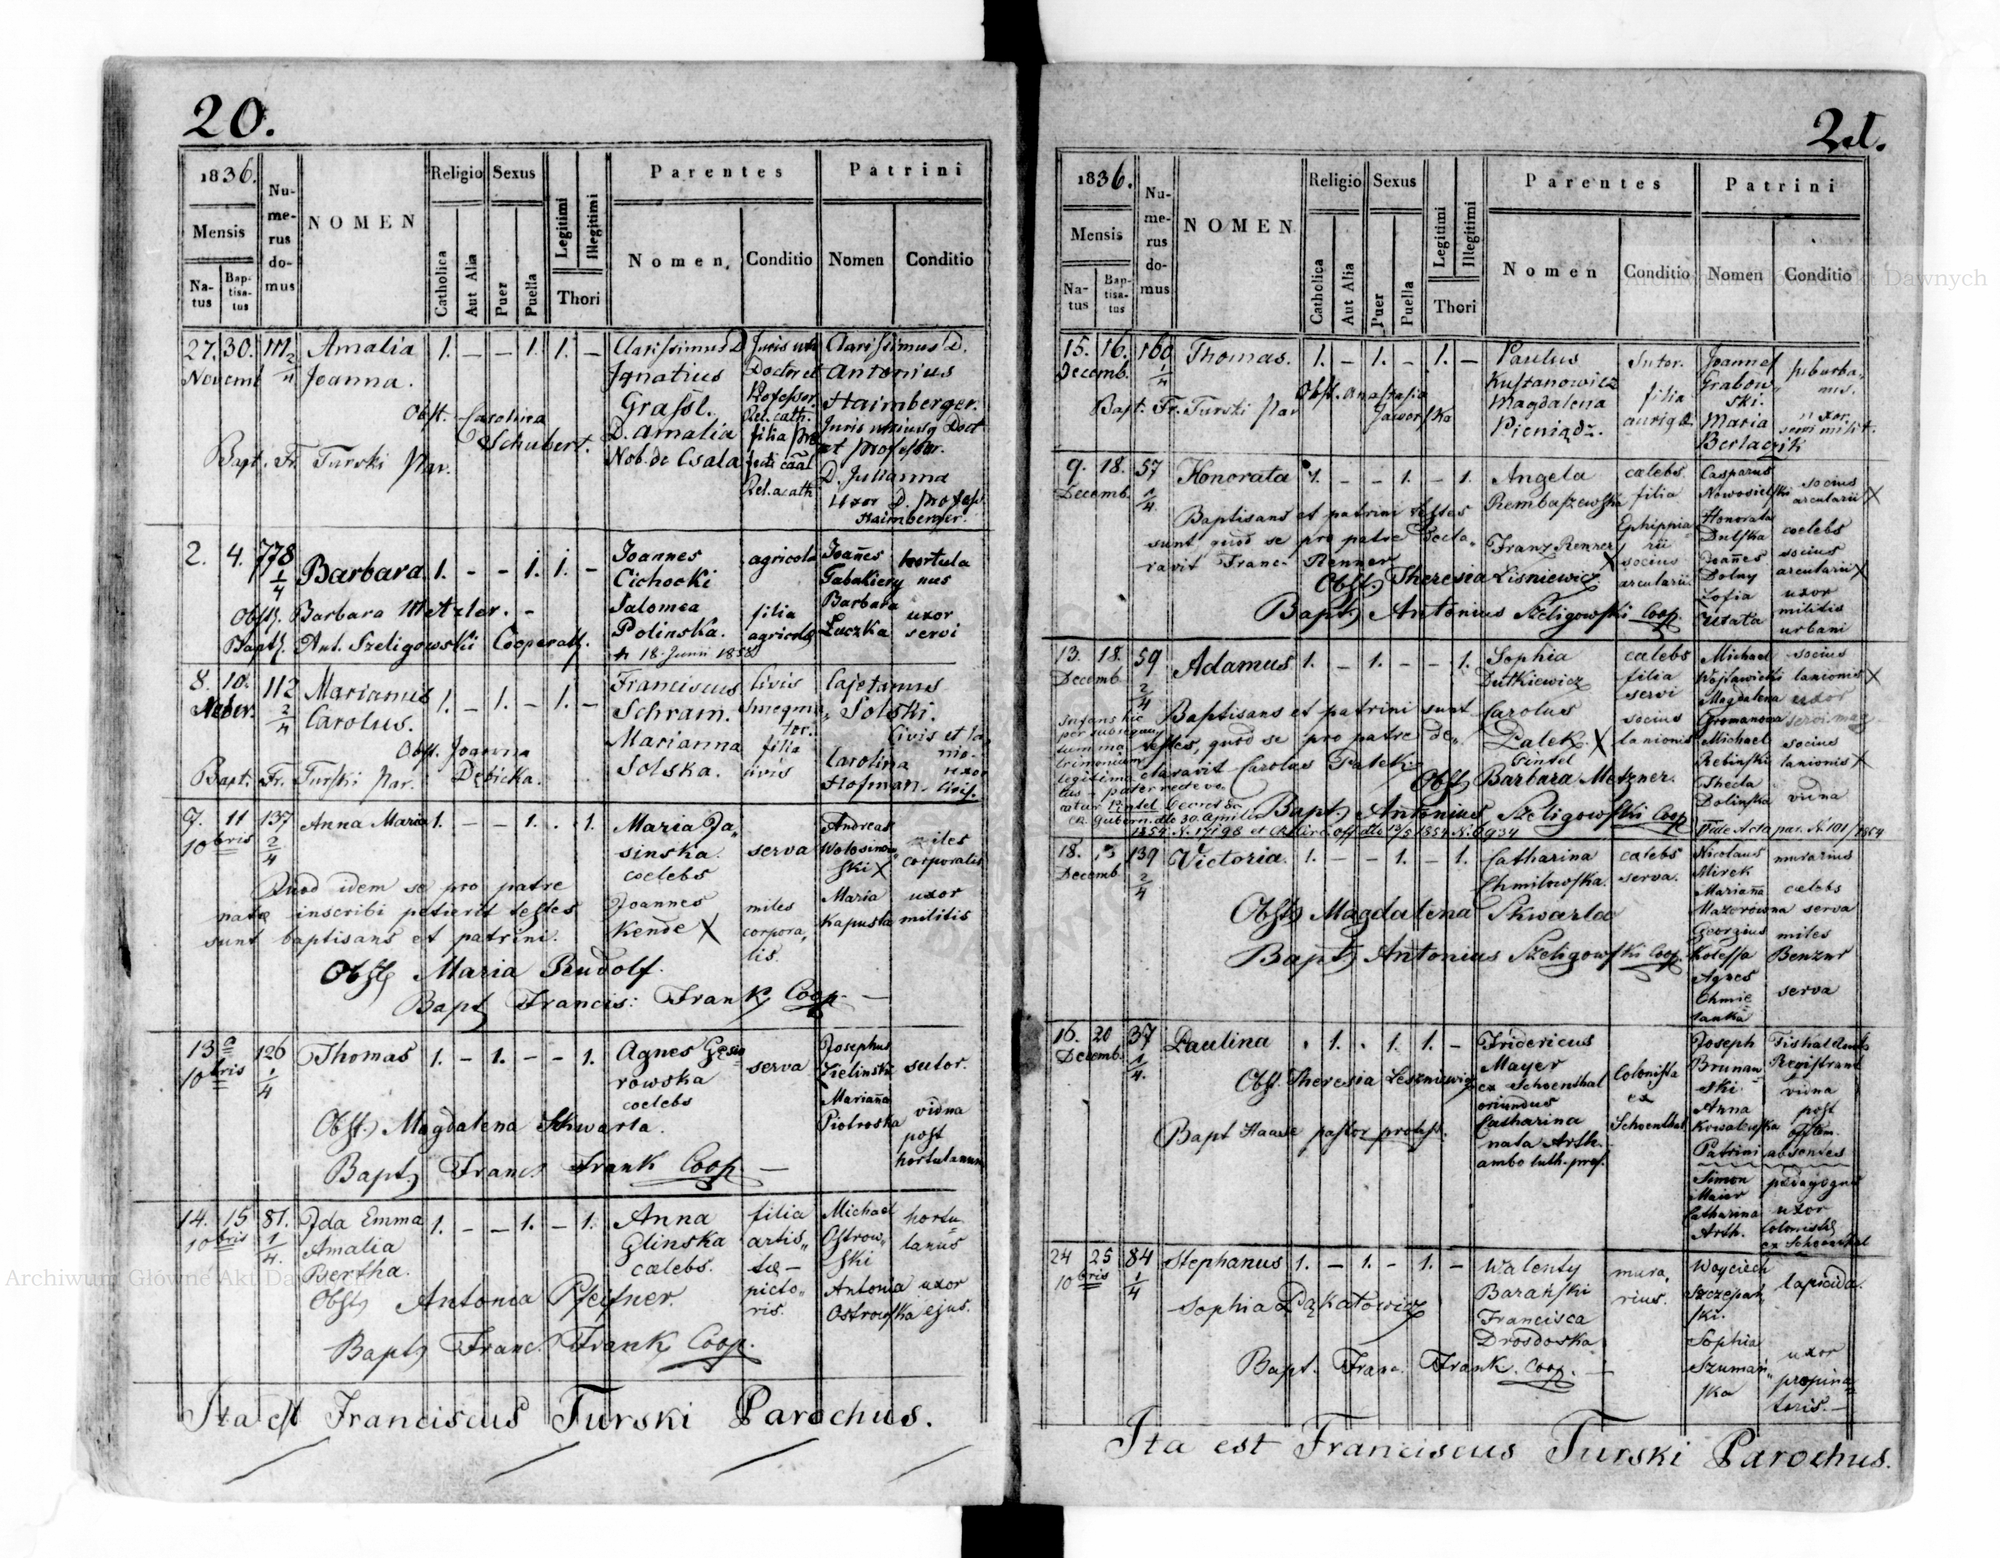 20.
1836.
Mensis
Na-
tus
Bap-
tisa-
tus
Nu-
me-
rus
do-
mus
NOMEN
Religio
Catholica
Aut Alia
Sexus
Puer
Puella
Legitimi
Illegitimi
Thori
Parentes
Nomen,
Conditio
Patrini
Nomen
Conditio
27. 30. Amalia 1. – – 1. 1. –
Joanna.
Clarissimus D
Ignatius
Grassl.
D. Amalia
Nob. de Csala
Doctor et
Professor.
Rel. cath.
filia
Rel. a cath
Clarissimus D.
Antonius
Haimberger.
et Professor.
D. Julianna
Uxor D. Profess.
Haimberger.
Obst. Carolina
Schubert.
Bapt. Fr. Turski Par.
2. 4. 778 1/4 Barbara 1. - - 1. 1. -
Joannes
Cichocki
Salomea
Polinska.
18. Junii 1858
agricola
filia
agricolae
Joañes
Gabakiery
Barbara
Luczka
hortula
nus
uxor
servi
Obst. Barbara Metzler. -
Bapt. Ant. Szeligowski Cooperat.
8. 10. 112 2/4 Marianus 1. – 1. – 1. –
Carolus.
Franciscus
Schram.
Marianna
Solska.
Civis
Smegma
tor.
filia
civis
Cajetanus
Solski.
Civis et la,
nio.
Carolina
Hofman.
uxor
Civis.
Obst. Joanna
Dębicka.
Bapt. Fr. Turski Par.
9. 11 137 2/4 Anna Maria 1. – – 1. . 1.
10bris
Maria Ja„
sinska.
coelebs
serva
Joannes
Kende X
miles
corpora,
lis.
Andreas
Wolosinow
ski X
miles
corporalis
Maria
Kapusta
uxor
militis
Quod idem se pro patre
natae inscribi petierit testes
sunt baptisans et patrini.
Obst. Maria Rudolf.
Bapt. Francis: Frank Coop. –
13 a 126 1/4 Thomas 1. – 1. – – 1.
10bris
Agnes
rowska
coelebs
serva
Josephus
Zielinski
sutor.
Mariaña
Piotroska
vidua
post
hortulanum
Obst. Magdalena Skwarla.
Bapt. Franc. Frank Coop. –
14. 15 81. 1/4 Ida Emma 1. – – 1. – 1.
10bris
Amalia
Bertha.
Anna
Glinska
cælebs.
filia
artis„
tæ –
picto„
ris.
Michael
Ostrow„
ski
hortu
lanus
Antonia
Ostrowska
uxor
ejus.
Obst. Antonia Pfeifner.
Bapt. Franc. Frank Coop.
Ita est Franciscus Turski Parochus.
21.
1836.
Mensis
Na-
tus
Bap-
tisa-
tus
Nu-
me-
rus
do-
mus
NOMEN
Religio
Catholica
Aut Alia
Sexus
Puer
Puella
Legitimi
Illegitimi
Thori
Parentes
Nomen
Conditio
Patrini
Nomen
Conditio
15. 16. 160 1/4 Thomas. 1. – 1. – 1. –
Decemb.
Paulus
Kustanowicz
Magdalena
Sutor.
filia
aurigæ
Joannes
Grabow
ski.
Maria
suburba„
nus.
uxor.
Obst. Anastasia
Jaworska
Bapt. Fr. Turski Par
9. 18. 57 1/4 Honorata 1. – – 1. – 1.
Decemb.
Angela
Rembaszewska
cælebs
filia
Ephippia
rii
Franz Renner X
socius
arcularii
Casparus
Nowosielski
socius
arcularii X
Honorata
Dulska
coelebs
Joañes
Dolny
socius
arcularii X
Zofia
uxor
militis
urbani
Baptisans et patrini testes
sunt quod se pro patre decla„
ravit Franc. Renner
Obst. Theresia Lisniewicz.
Bapt. Antonius Szeligowski Coop.
13. 18. 59 2/4 Adamus 1. – 1. – – 1.
Decemb.
Sophia
Dutkiewicz
cælebs
filia
servi
Carolus
Palek X
Pintel
socius
lanionis
Michael
socius
lanionis X
Magdalena
Gromanowa
uxor
Michael
Rebinski
socius
lanionis X
Thecla
Dolinska
vidua
Baptisans et patrini sunt
testes, quod se pro patre de„
claravit Carolus Palek
Obst. Barbara Metzner.
Bapt. Antonius Szeligowski Coop
Infans hic
per subsequens
matrimonium
legitima
tus
Vide Acta par. N. 101/1854
18. 139 2/4 Victoria. 1. – – 1. – 1.
Decemb
Catharina
Chmilowska.
cælebs
serva.
Nicolaus
Mirek
murarius
Mariaña
Mazerowna
cælebs
serva
Georgius
Kolessa
miles
Agnes
Chmie
lanka
serva
Obst. Magdalena Skwarla
Bapt. Antonius Szeligowski Coop.
16. 20 37 1/4. Paulina . 1. . 1. 1. –
Decemb.
Fridericus
Mayer
ex Schoenthal
oriundus
Catharina
nata Arth.
ambo luth. prof.
Colonista
ex
Schoenthal
Joseph
Brunaw
ski
Registrant
Anna
Kowalewska
vidua
post
Patrini absentes
Simon
Maier
pædagogus
Catharina
Arth.
uxor
Colonistæ
ex Schoenthal
Obst. Theresia Leszniewicz
Bapt Haase pastor protest.
24 25 84 1/4 Stephanus 1. – 1. – 1. –
10bris
Walenty
Barański
Francisca
Drosdoska
mura,
rius.
Woyciech
Szczepań„
ski.
lapicida.
Sophia
Szumań„
ska
uxor
propina
toris. –
Sophia Dąkatowicz
Bapt. Franc. Frank. Coop. –
Ita est Franciscus Turski Parochus.
Archiwum Główne Akt Dawnych
Archiwum Główne Akt Dawnych